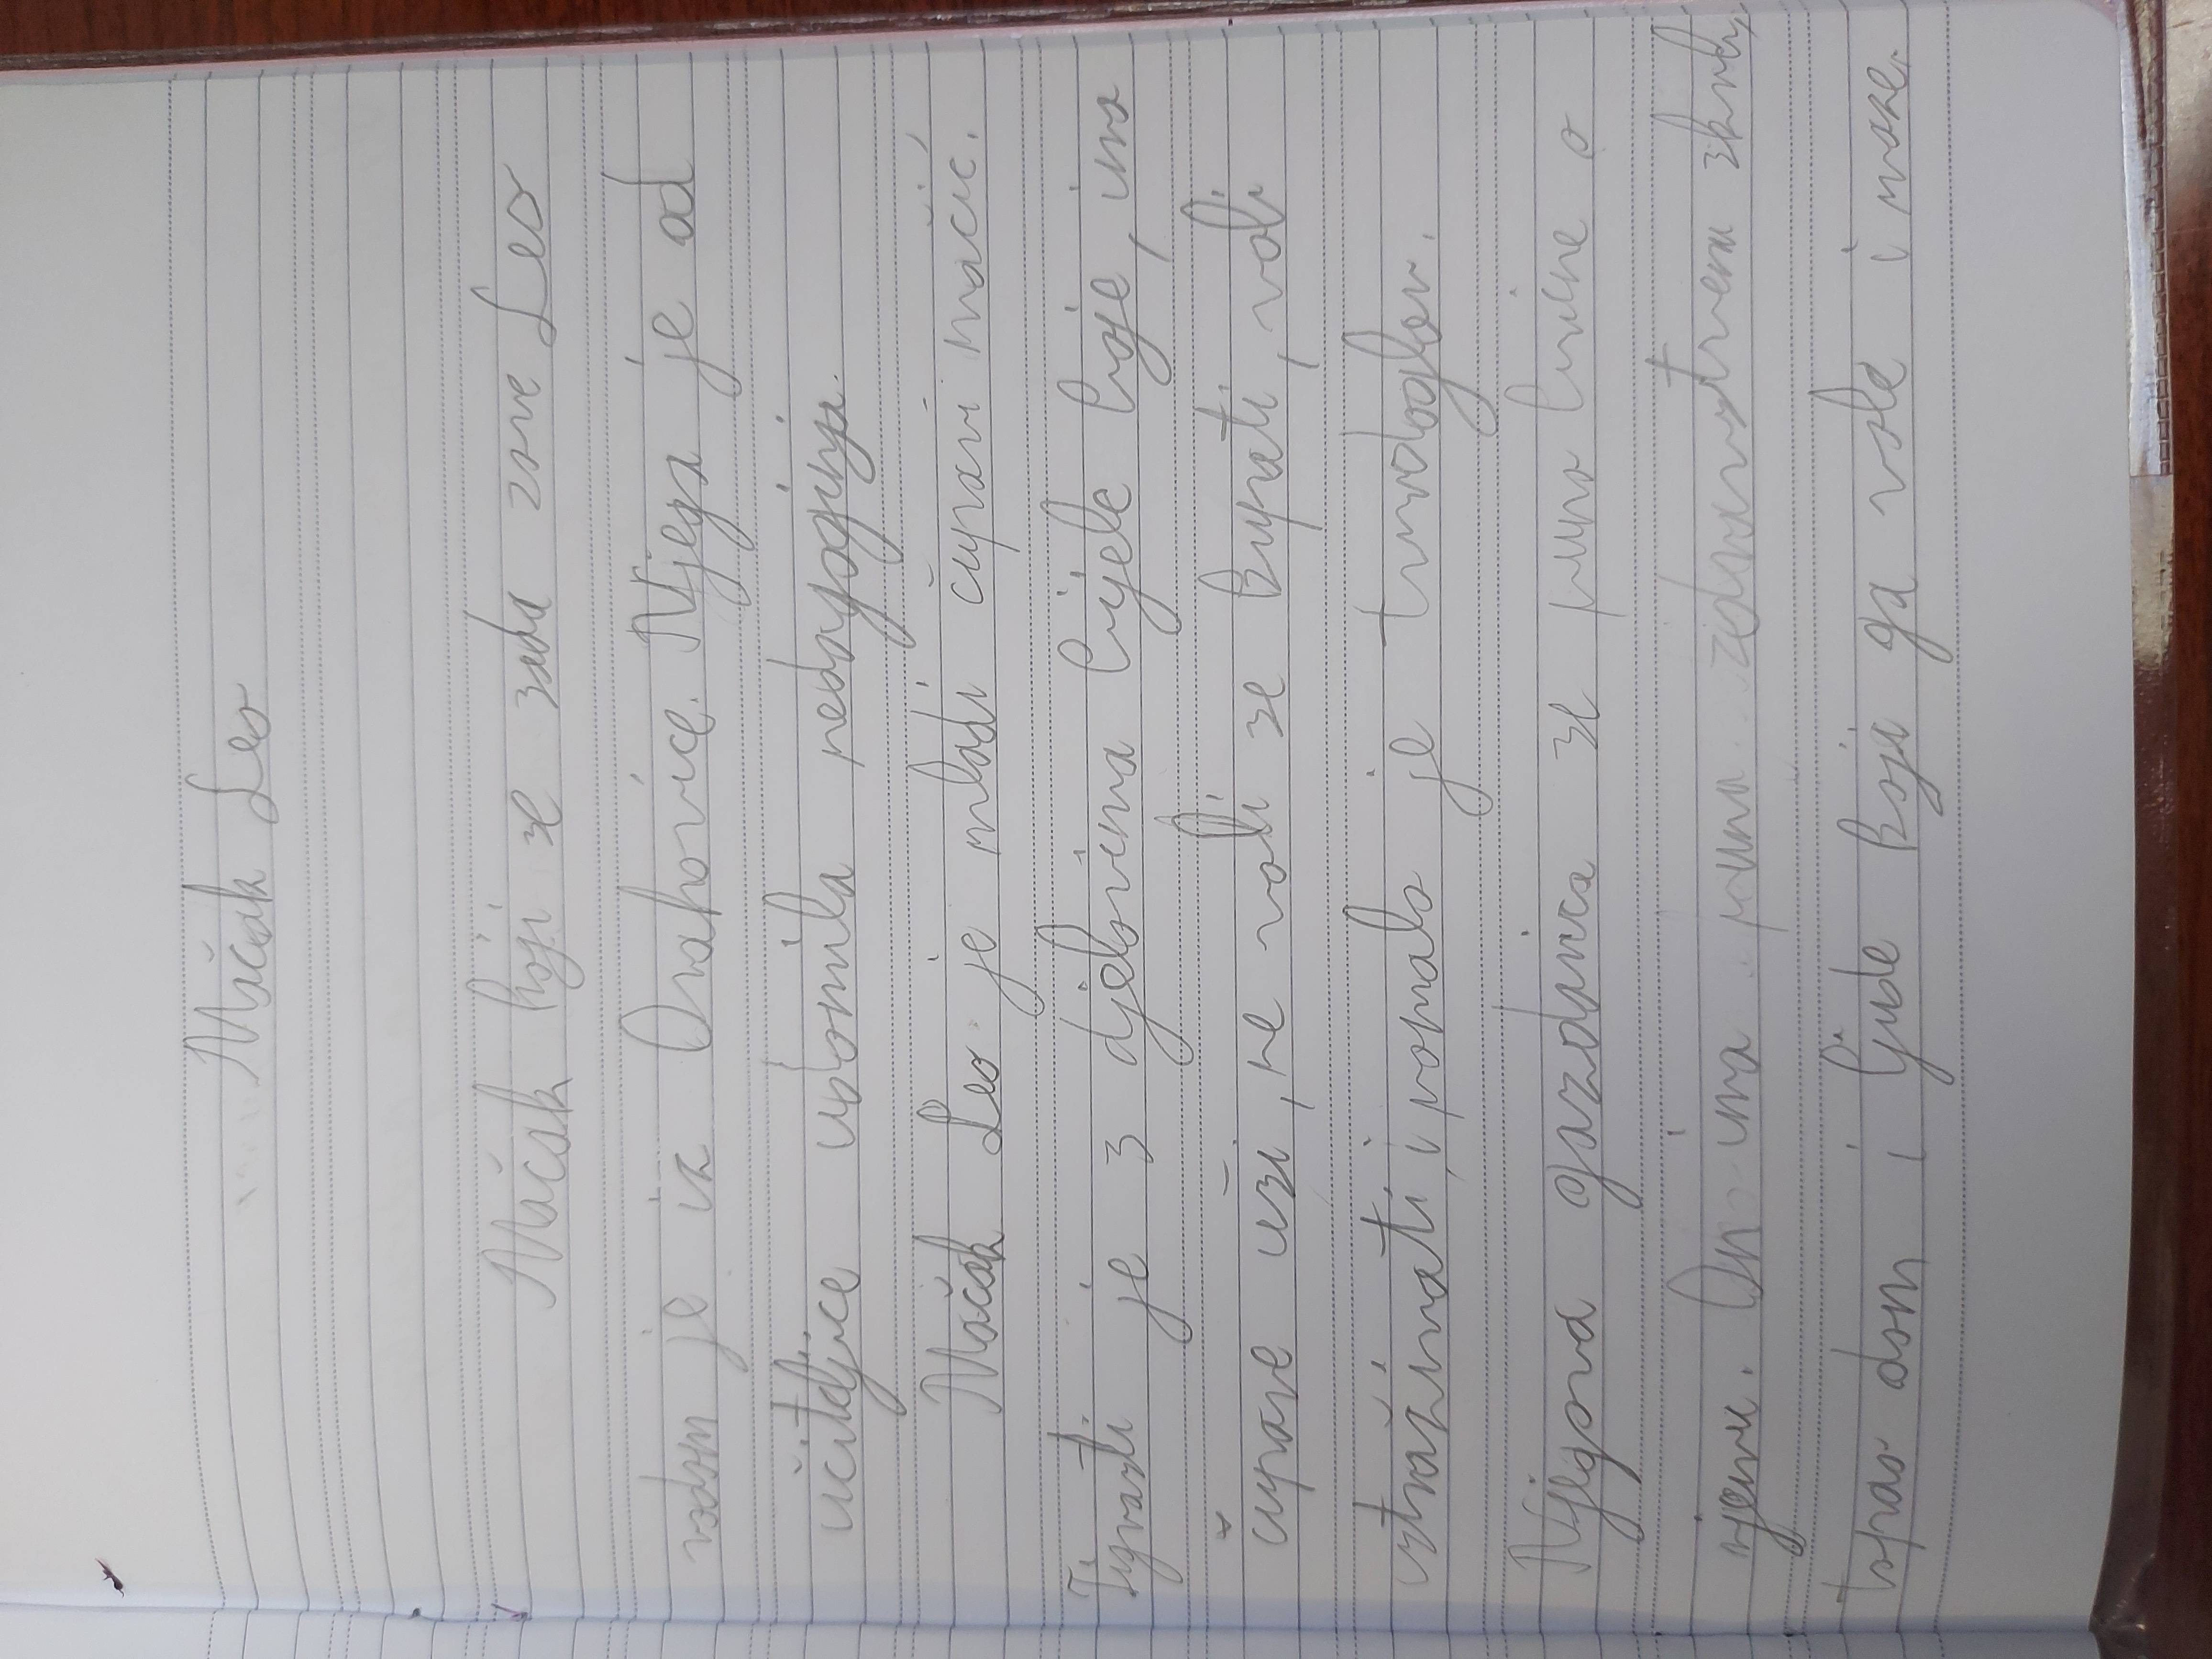 Mačak Leo
Mačak koji se sada zove Leo
rodom je iz Orahovice. Njega je od
učiteljice udomila pedagoginja.
Mačak Leo je mladi čupavi mačić.
Tigrasti je s djelovima bijele boje, ima
čupave uši, ne voli se kupati, voli
istraživati i pomalo je tvrdoglav.
Njegova gazdarica se puno brine o
njemu. On ima puno zdravstvem skrb,
topao dom i ljude koji ga vole i maze.